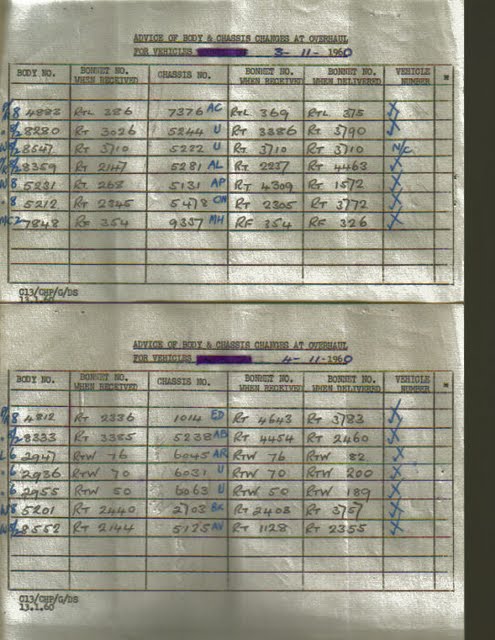 ADVICE OF BODY & CHASSIS CHANGES AT OVERHAUL
FOR VEHICLES 3-11-1960
BODY NO. BONNET NO. WHEN RECEIVED CHASSIS NO. BONNET NO. WHEN RECEIVED BONNET NO. WHEN DELIVERED VEHICLE NUMBER
8 4883 RTL 386 7376 AC RTL 369 RTL 375 X
8280 RT 3026 5244 U RT 3386 RT 3790 X
8547 RT 3710 5222 U RT 3710 RT 3710 N/C
8359 RT 2147 5281 AL RT 2237 RT 4463 X
8 5231 RT 268 5131 AP RT 4309 RT 1572 X
8 5212 RT 2345 5478 RT 2305 RT 3772 X
7848 RF 354 9357 MH RF 354 RF 326 X
C13/CHP/G/DS
13.1.60
ADVICE OF BODY & CHASSIS CHANGES AT OVERHAUL
FOR VEHICLES 4-11-1960
BODY NO. BONNET NO. WHEN RECEIVED CHASSIS NO. BONNET NO. WHEN RECEIVED BONNET NO. WHEN DELIVERED VEHICLE NUMBER
8 4812 RT 2336 1014 ED RT 4643 RT 3783 X
8333 RT 3385 5238 AB RT 4454 RT 2460 X
6 2947 RTW 76 6045 AR RTW 76 RTW 82 X
6 2936 RTW 70 6031 U RTW 70 RTW 200 X
6 2955 RTW 50 6063 U RTW 50 RTW 189 X
8 5201 RT 2440 2703 BK RT 2408 RT 3757 X
8552 RT 2144 5125 AV RT 1128 RT 2355 X
C13/CHP/G/DS
13.1.60